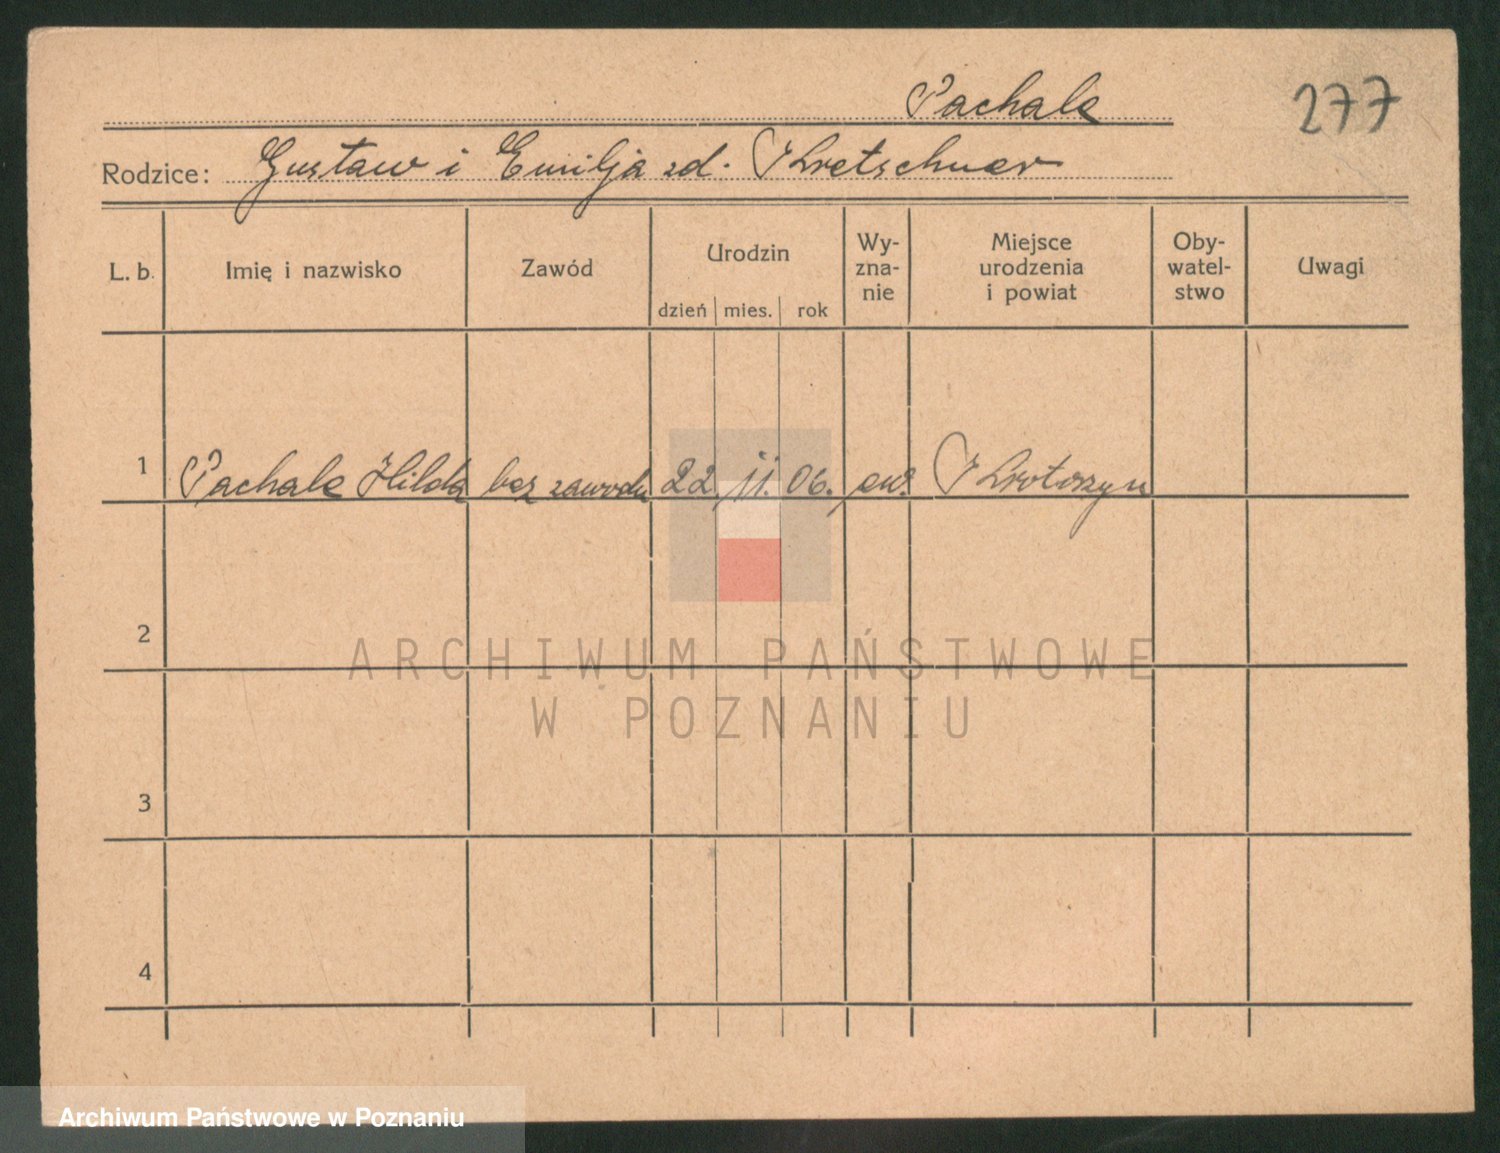 Pachale
277
Rodzice: Gustaw i Emilja zd. Kretschmer
L. b. Imię i nazwisko Zawód Urodzin dzień mies. rok Wy-zna-nie Miejsce urodzenia i powiat Oby-watel-stwo Uwagi
1 Pachale Hilda bez zawodu 22. 11. 06. ew. Krotoszyn
2
ARCHIWUM PAŃSTWOWE
W POZNANIU
3
4
Archiwum Państwowe w Poznaniu